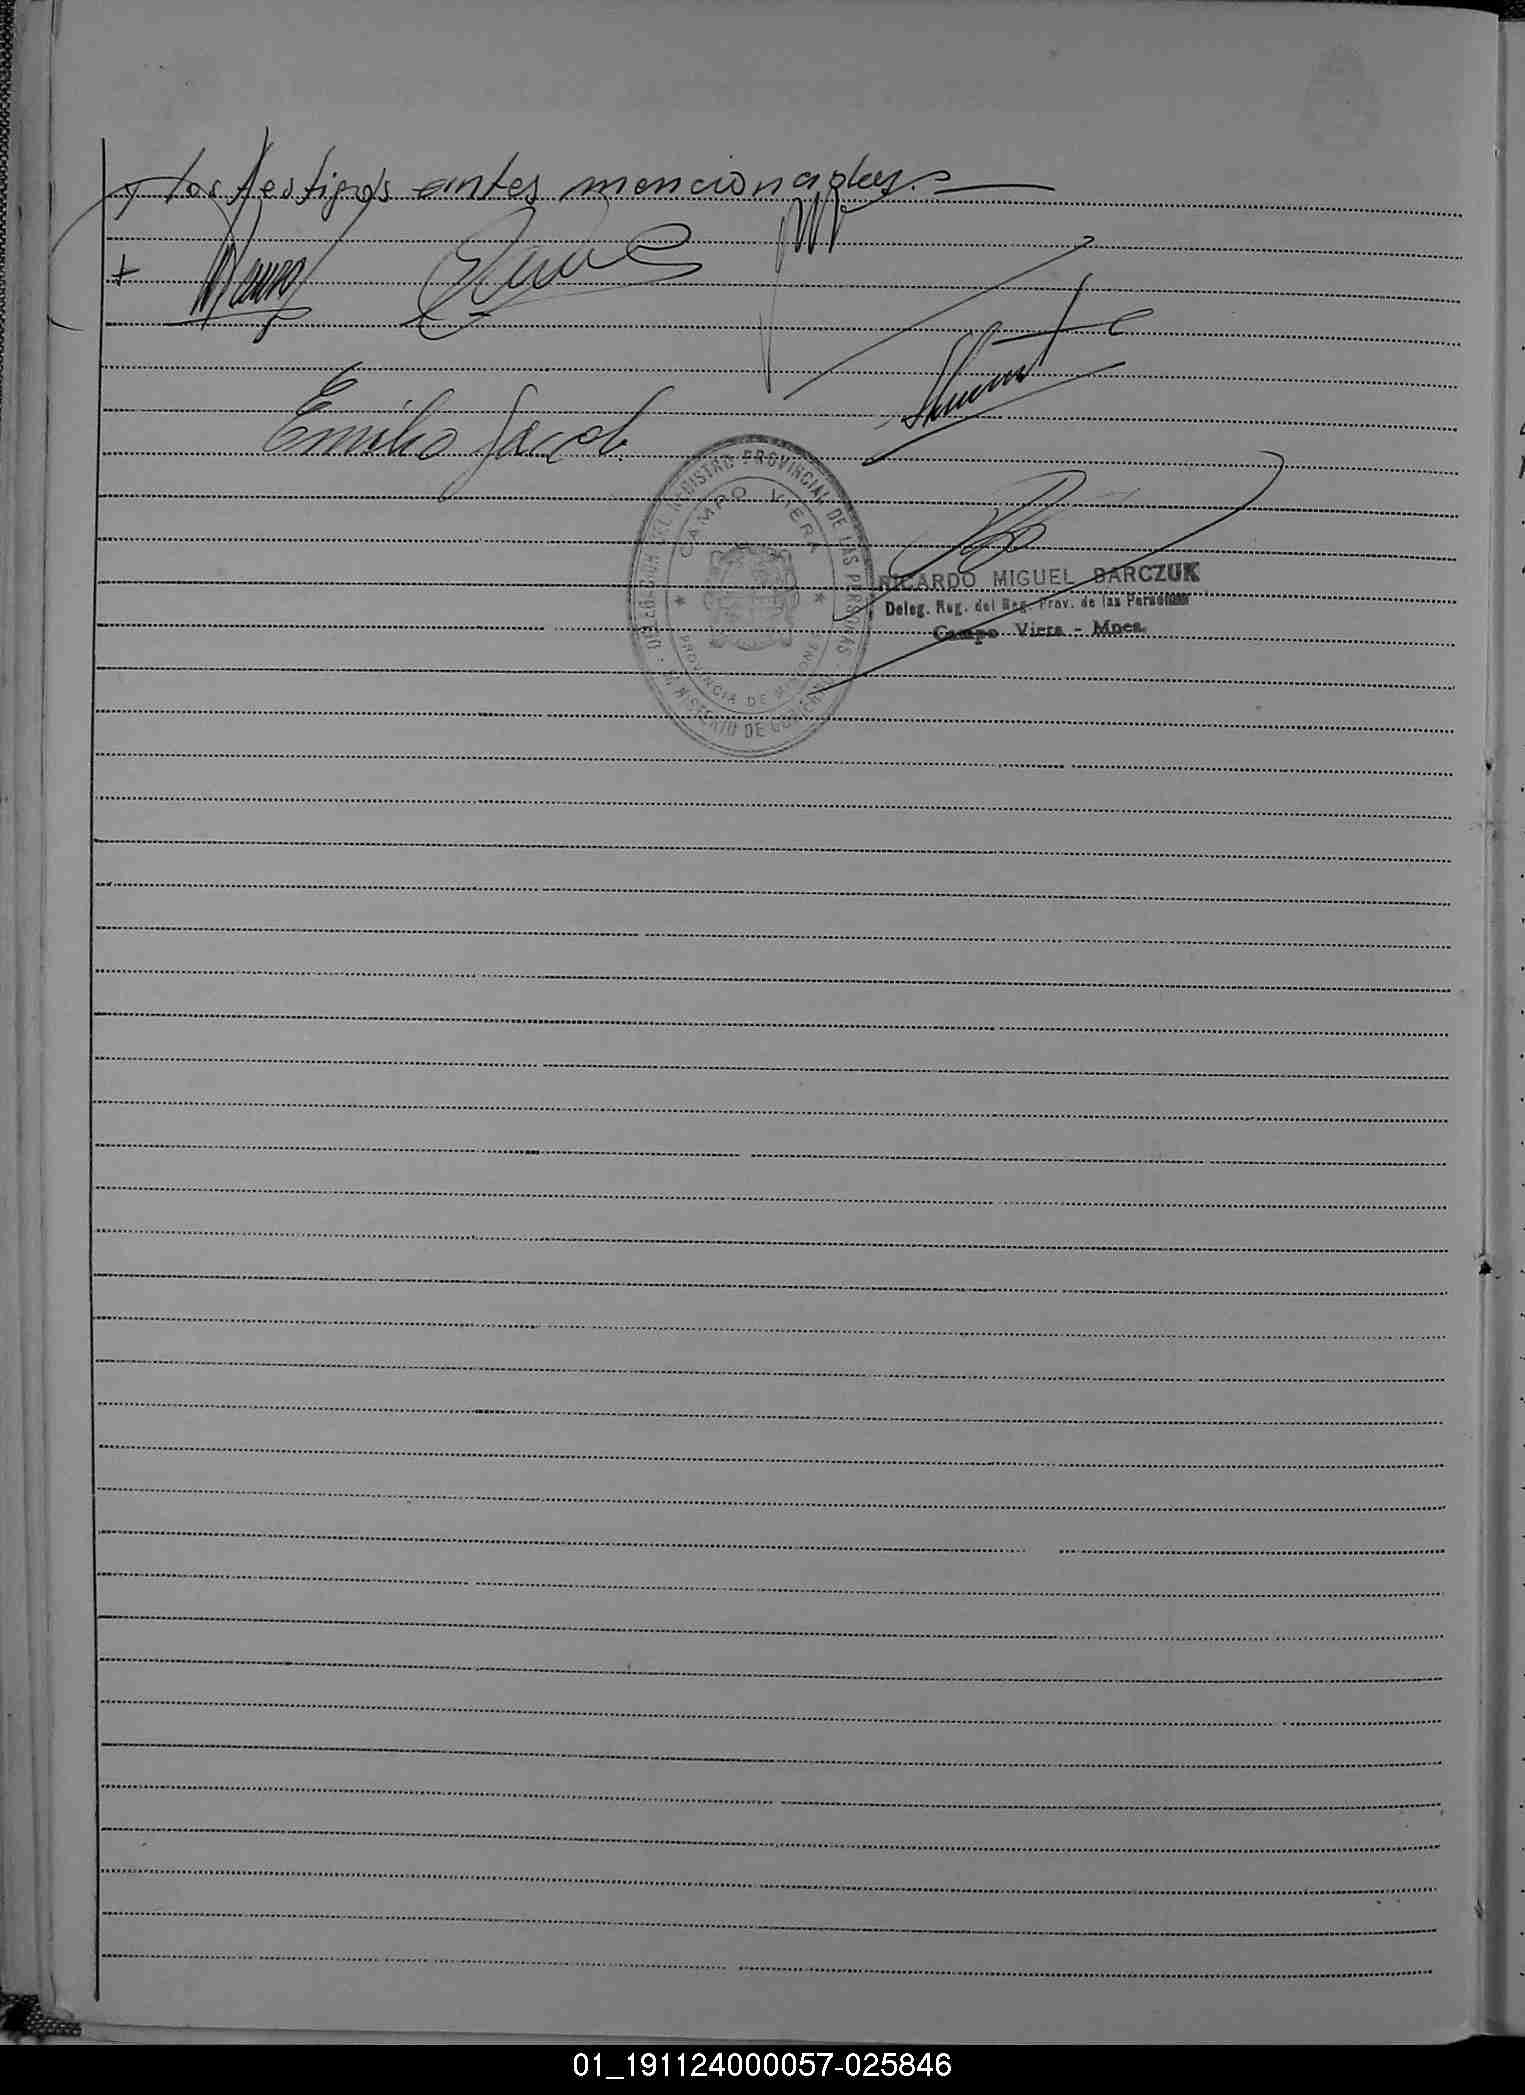 y los testigos antes mencionados.
Emilio Jacob
DELEGACION DEL REGISTRO PROVINCIAL DE LAS PERSONAS
CAMPO VIERA
PROVINCIA DE MISIONES
MINISTERIO DE GOBIERNO
RICARDO MIGUEL BARCZUK
Deleg. Reg. del Reg. Prov. de las Personas
Campo Viera - Mnes.
01_191124000057-025846